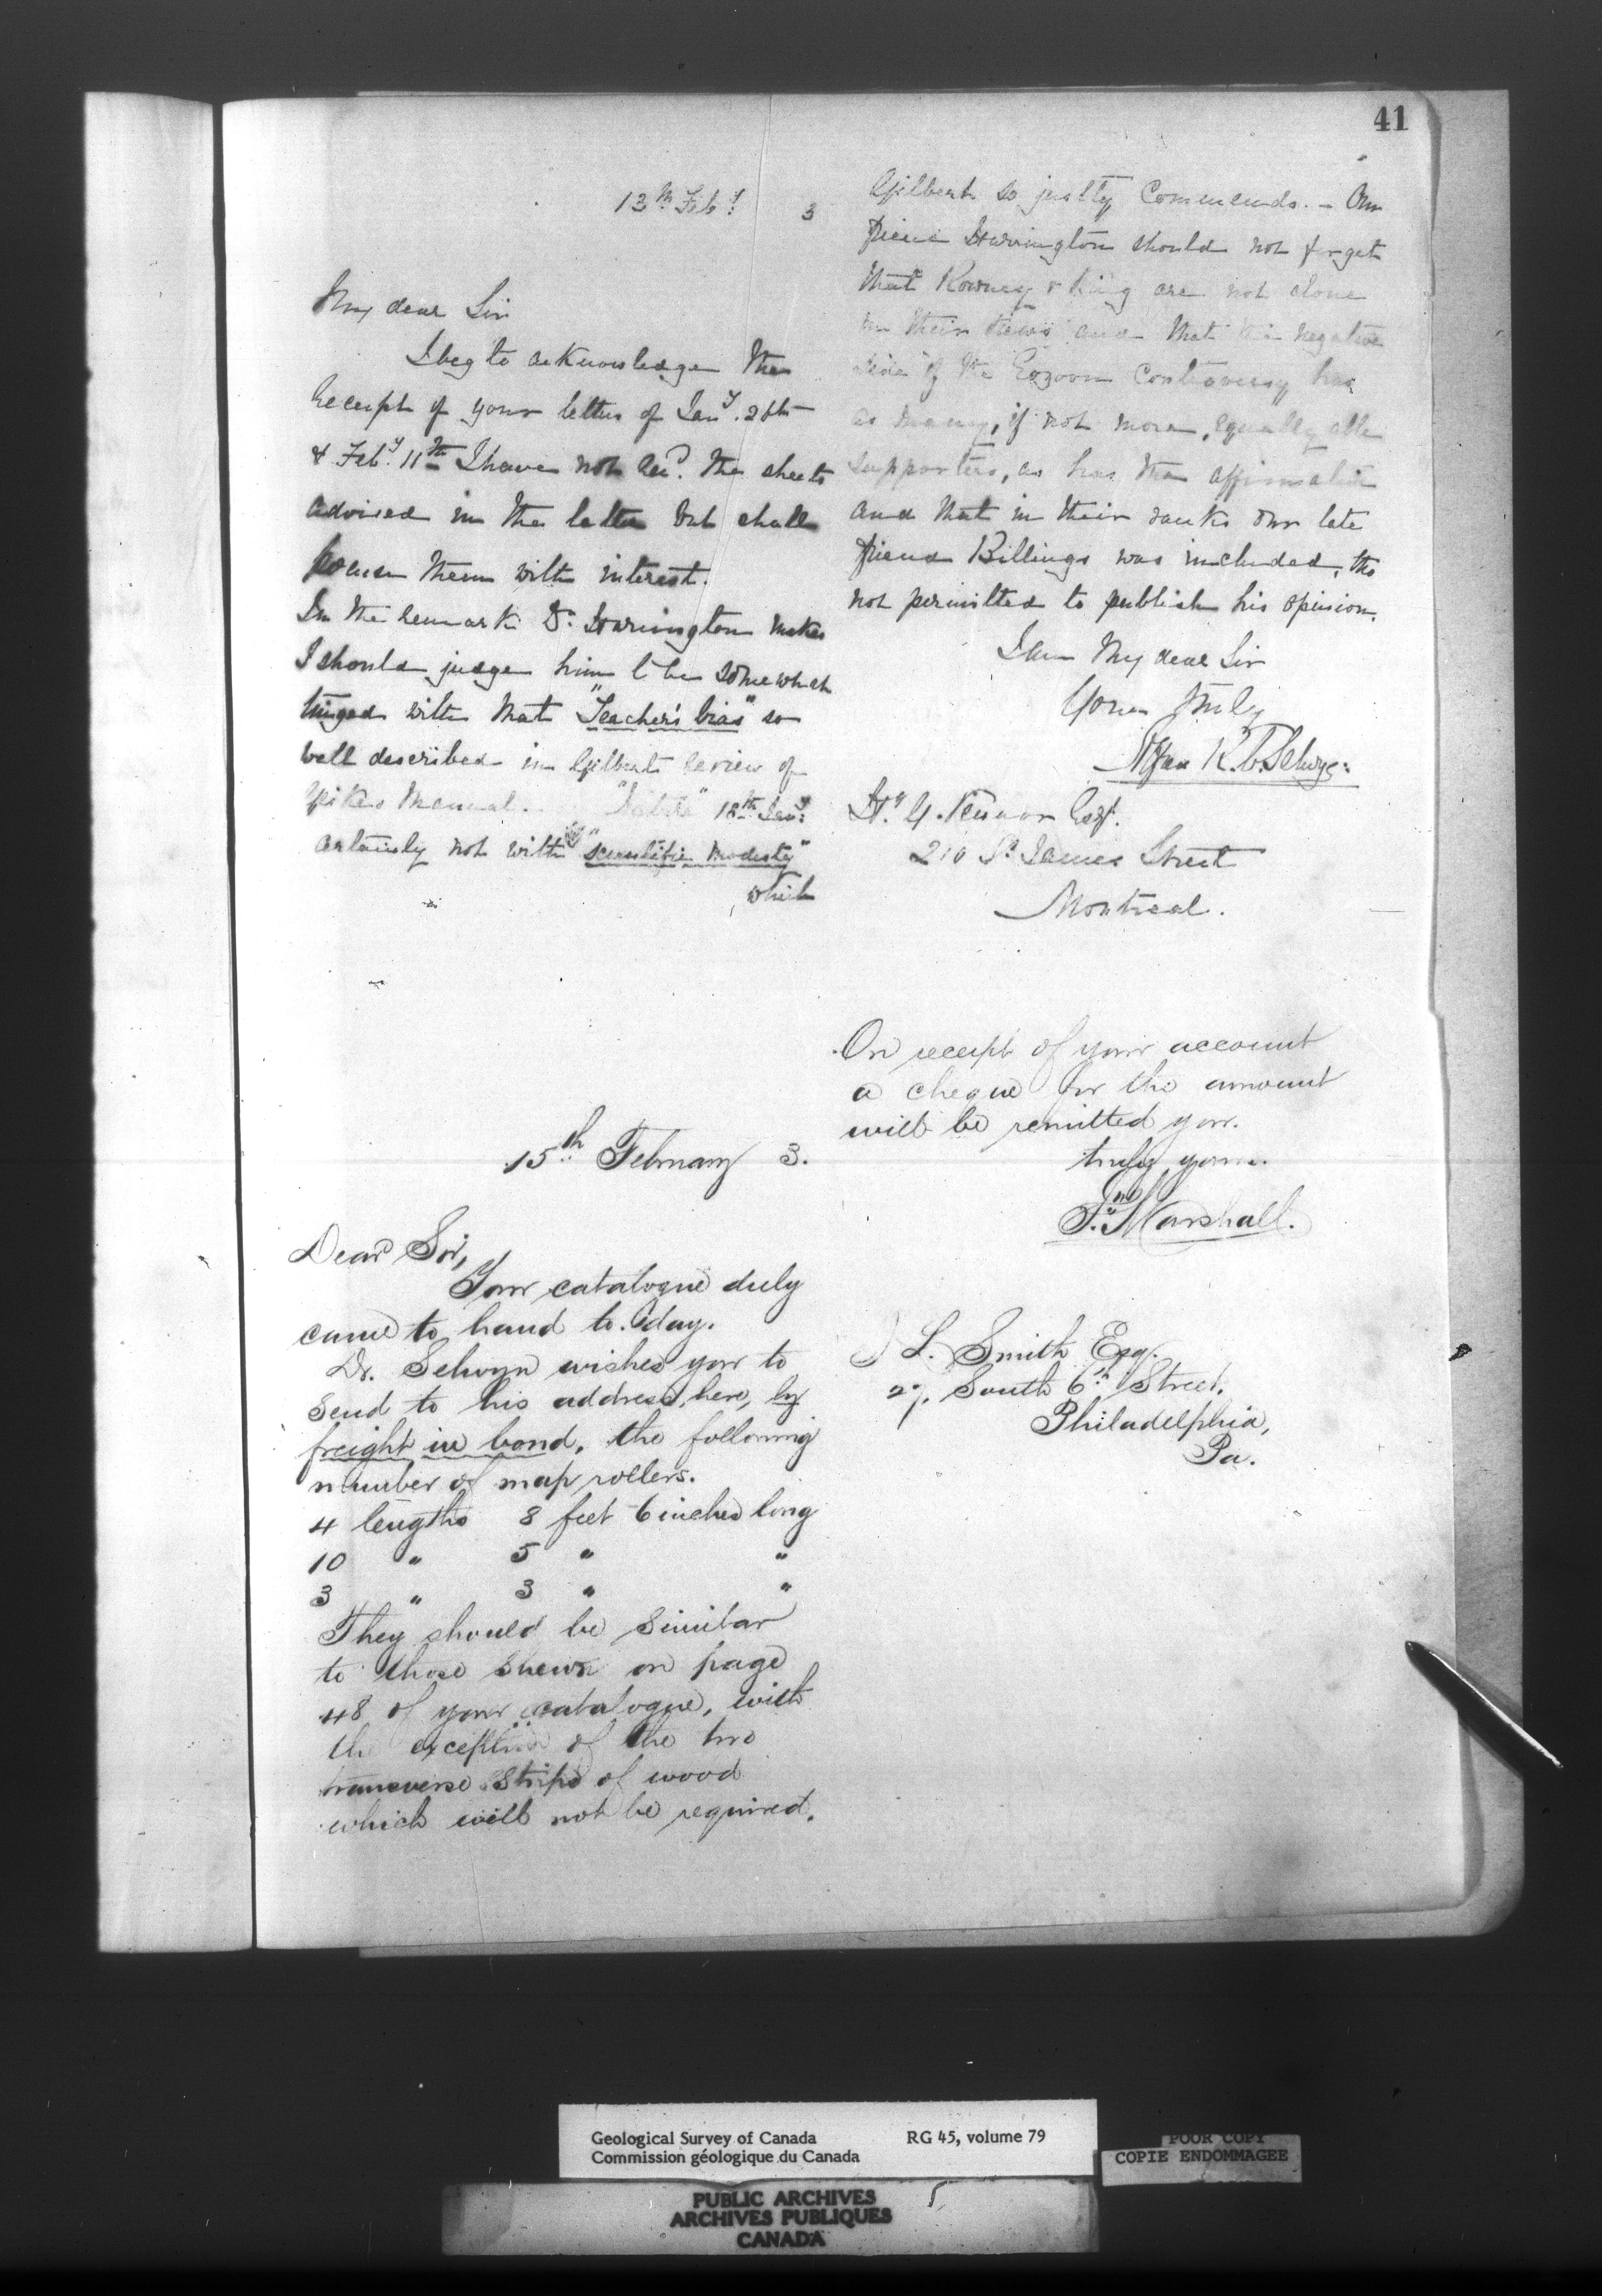 41
13th Feby. 3
My dear Sir
I beg to acknowledge the
receipt of your letters of Jany. 26th
& Feby. 11th I have not recd. the sheets
advised in the latter but shall
peruse them with interest.
In the remark Dr. Harrington makes
I should judge him to be somewhat
tinged with that "Teacher's bias" so
well described in Gilberts review of
Manual. 18th Jany.
certainly not with "scientific modesty"
which
Gilbert so justly commends. — Our
friend Harrington should not forget
that Rowney & King are not alone
in their views and that the negative
side of the Eozoon controversy has
as many, if not more, equally able
supporters, as has the affirmative
and that in their ranks our late
friend Billings was included, tho
not permitted to publish his opinion.
I am My dear Sir
Yours truly
Alfred R. C. Selwyn
Hy. G. Vennor Esqr.
210 St. James Street
Montreal.
15th February 3.
Dear Sir,
Your catalogue duly
came to hand to-day.
Dr. Selwyn wishes you to
send to his address, here, by
freight in bond, the following
number of map rollers.
4 lengths 8 feet 6 inches long
10 " 5 " "
3 " 3 " "
They should be similar
to those shewn on page
48 of your catalogue, with
the exception of the two
transverse strips of wood
which will not be required.
On receipt of your account
a cheque for the amount
will be remitted you.
truly yours.
Jno. Marshall.
L. Smith Esq.
27. South 6th Street,
Philadelphia,
Pa.
Geological Survey of Canada RG 45, volume 79
Commission géologique du Canada
POOR COPY
COPIE ENDOMMAGEE
PUBLIC ARCHIVES
ARCHIVES PUBLIQUES
CANADA